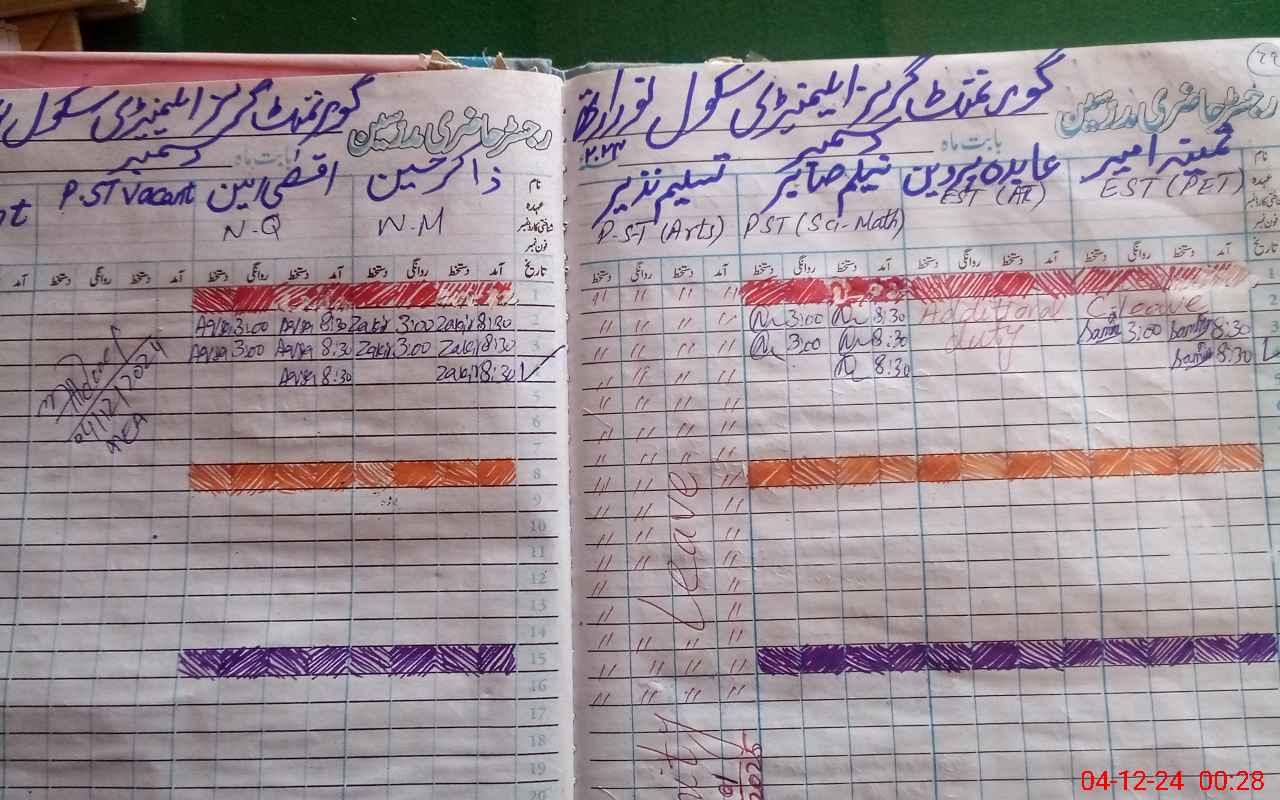 گورنمنٹ گرلز ایلیمنٹری سکول
رجسٹر حاضری مدرسین
بابت ماہ دسمبر
ذاکر حسین
P.ST Vacant
N-Q
W.M
نام
عہدہ
شناختی کارڈ نمبر
فون نمبر
تاریخ آمد دستخط روانگی دستخط آمد دستخط روانگی دستخط آمد دستخط روانگی دستخط آمد
1
2 Zakir 8:30 Zakir 3:00 Aqsa 8:30 Aqsa 3:00
3 Zakir 8:30 Zakir 3:00 Aqsa 8:30 Aqsa 3:00
Zakir 8:30 Aqsa 8:30
5
6
7
8
9
10
11
12
13
14
15
16
17
18
19
20
04/12/2024
گورنمنٹ گرلز ایلیمنٹری سکول
رجسٹر حاضری مدرسین
بابت ماہ دسمبر
ثمینہ امیر عابدہ پروین نیلم صابر تسلیم نذیر
P.ST (Arts) PST (Sci-Math) EST (AT) EST (PET)
نام
عہدہ
شناختی کارڈ نمبر
فون نمبر
تاریخ آمد دستخط روانگی دستخط آمد دستخط روانگی دستخط آمد دستخط روانگی دستخط آمد دستخط روانگی دستخط
1
2 C.leave Additional 8:30 3:00
3 8:30 3:00 duty 8:30 3:00
8:30 8:30
leave
2025
04-12-24 00:28